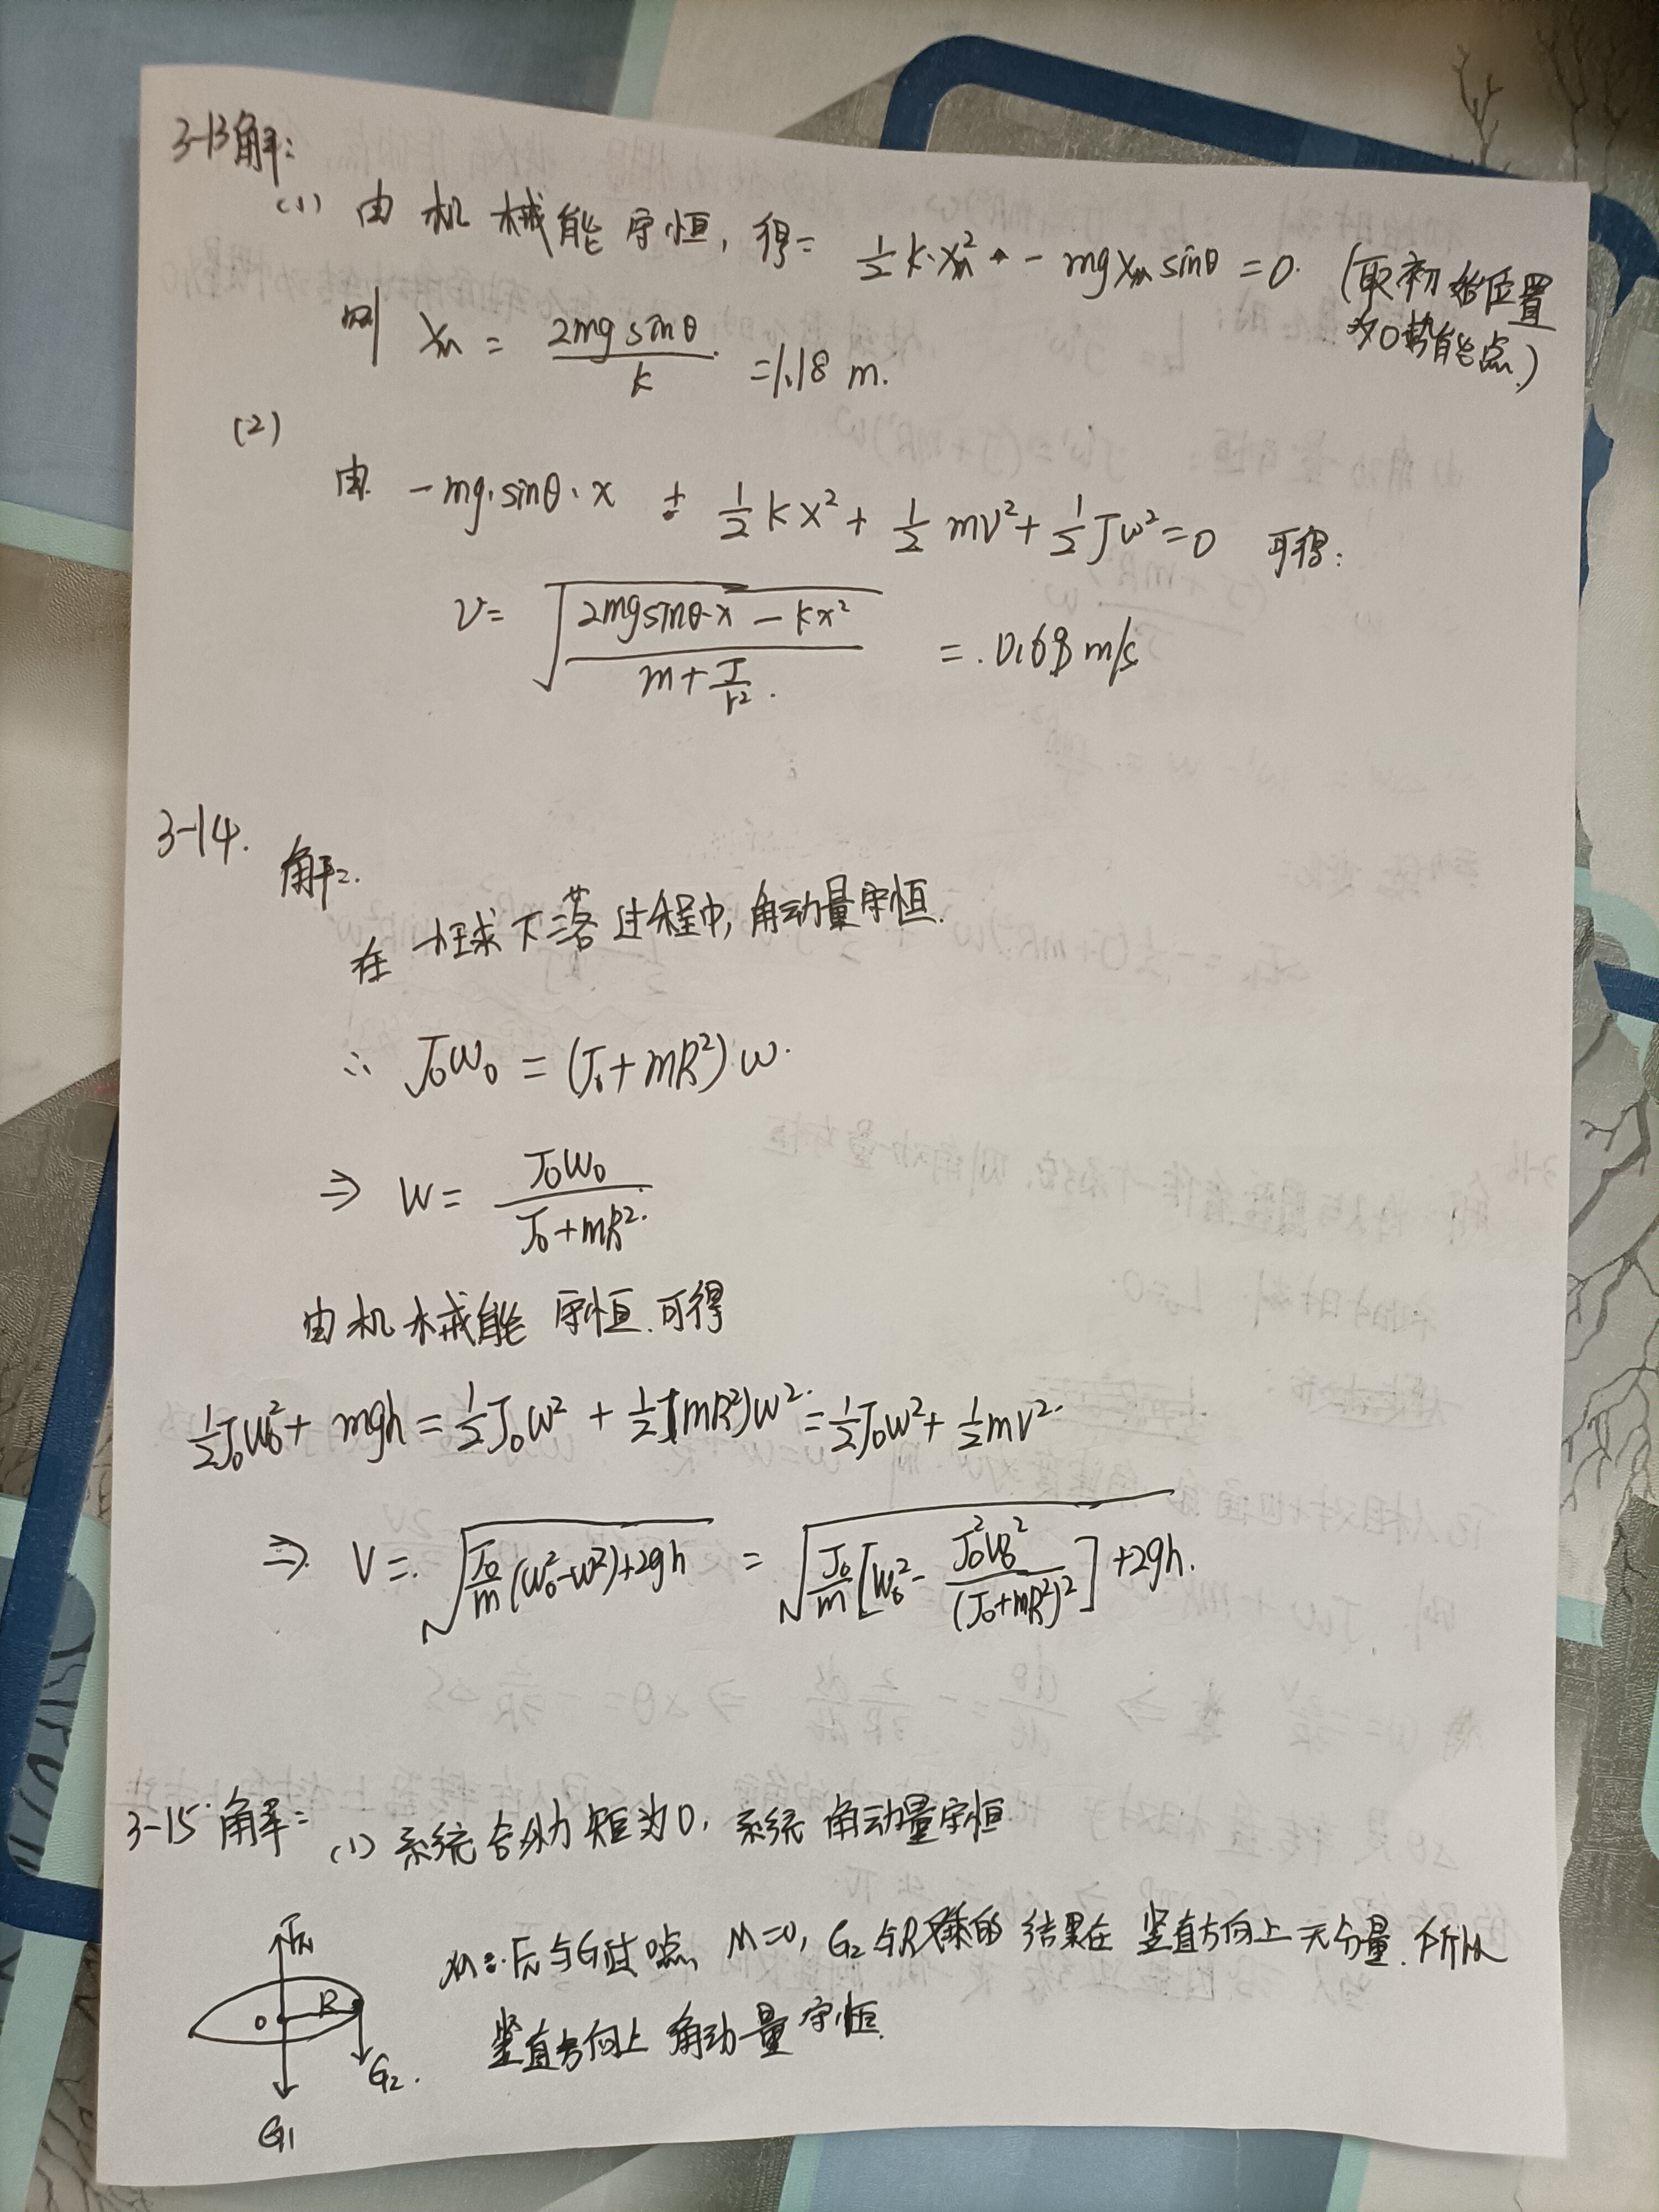 3-13解:
(1) 由机械能守恒, 得: ½k·xₘ² - mgxₘsinθ = 0. (取初始位置
为0势能点.)
则 xₘ = 2mgsinθ/k = 1.18 m.
(2)
由 -mg·sinθ·x + ½kx² + ½mv² + ½Jω² = 0 可得:
v = √((2mgsinθ·x - kx²)/(m + J/r²)) = 0.68 m/s
3-14.
解:
在小球下落过程中, 角动量守恒.
∴ J₀ω₀ = (J₀+mR²)ω.
⇒ ω = J₀ω₀/(J₀+mR²).
由机械能守恒可得
½J₀ω₀² + mgh = ½J₀ω² + ½(mR²)ω² = ½J₀ω² + ½mv².
⇒ v = √(J₀/m(ω₀²-ω²)+2gh) = √(J₀/m[ω₀² - J₀²ω₀²/(J₀+mR²)²]+2gh).
3-15 解:
(1) 系统合外力矩为0, 系统角动量守恒
Fₙ
O R
G₂.
G₁
Fₙ与G过O点, M=0, G₂与R乘的结果在竖直方向上无分量. 所以
竖直方向上角动量守恒.